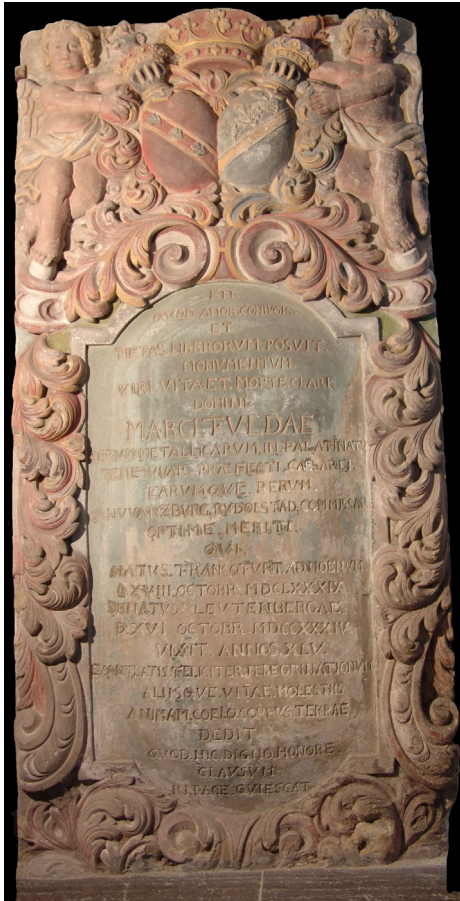 EN
QUOD AMOR CONIUGIS
ET
PIETAS LIBERORUM POSUIT
MONUMENTUM
VIRI VITA ET MORTE CLARI
DOMINI
MARCI FULDAE
RERUM METALLICARUM IN PALATINATU
PRAEFECTI CAESAREI
EARUMQUE RERUM
RUDOLSTAD COMMISSARI
OPTIME MERITI
QUI
NATUS FRANCOFURT AD MOENUM
D XVIII OCTOBR MDCLXXXIX
DENATUS LEUTENBERGAE
D XVI OCTOBR MDCCXXXIV
VIXIT ANNOS XLV
EXANTLATIS FELICITER PEREGRINATIONUM
ALIISQUE VITAE MOLESTIIS
ANIMAM COELO CORPUS TERRAE
DEDIT
QUOD HIC DIGNO HONORE
CLAUSUM
IN PACE QUIESCAT